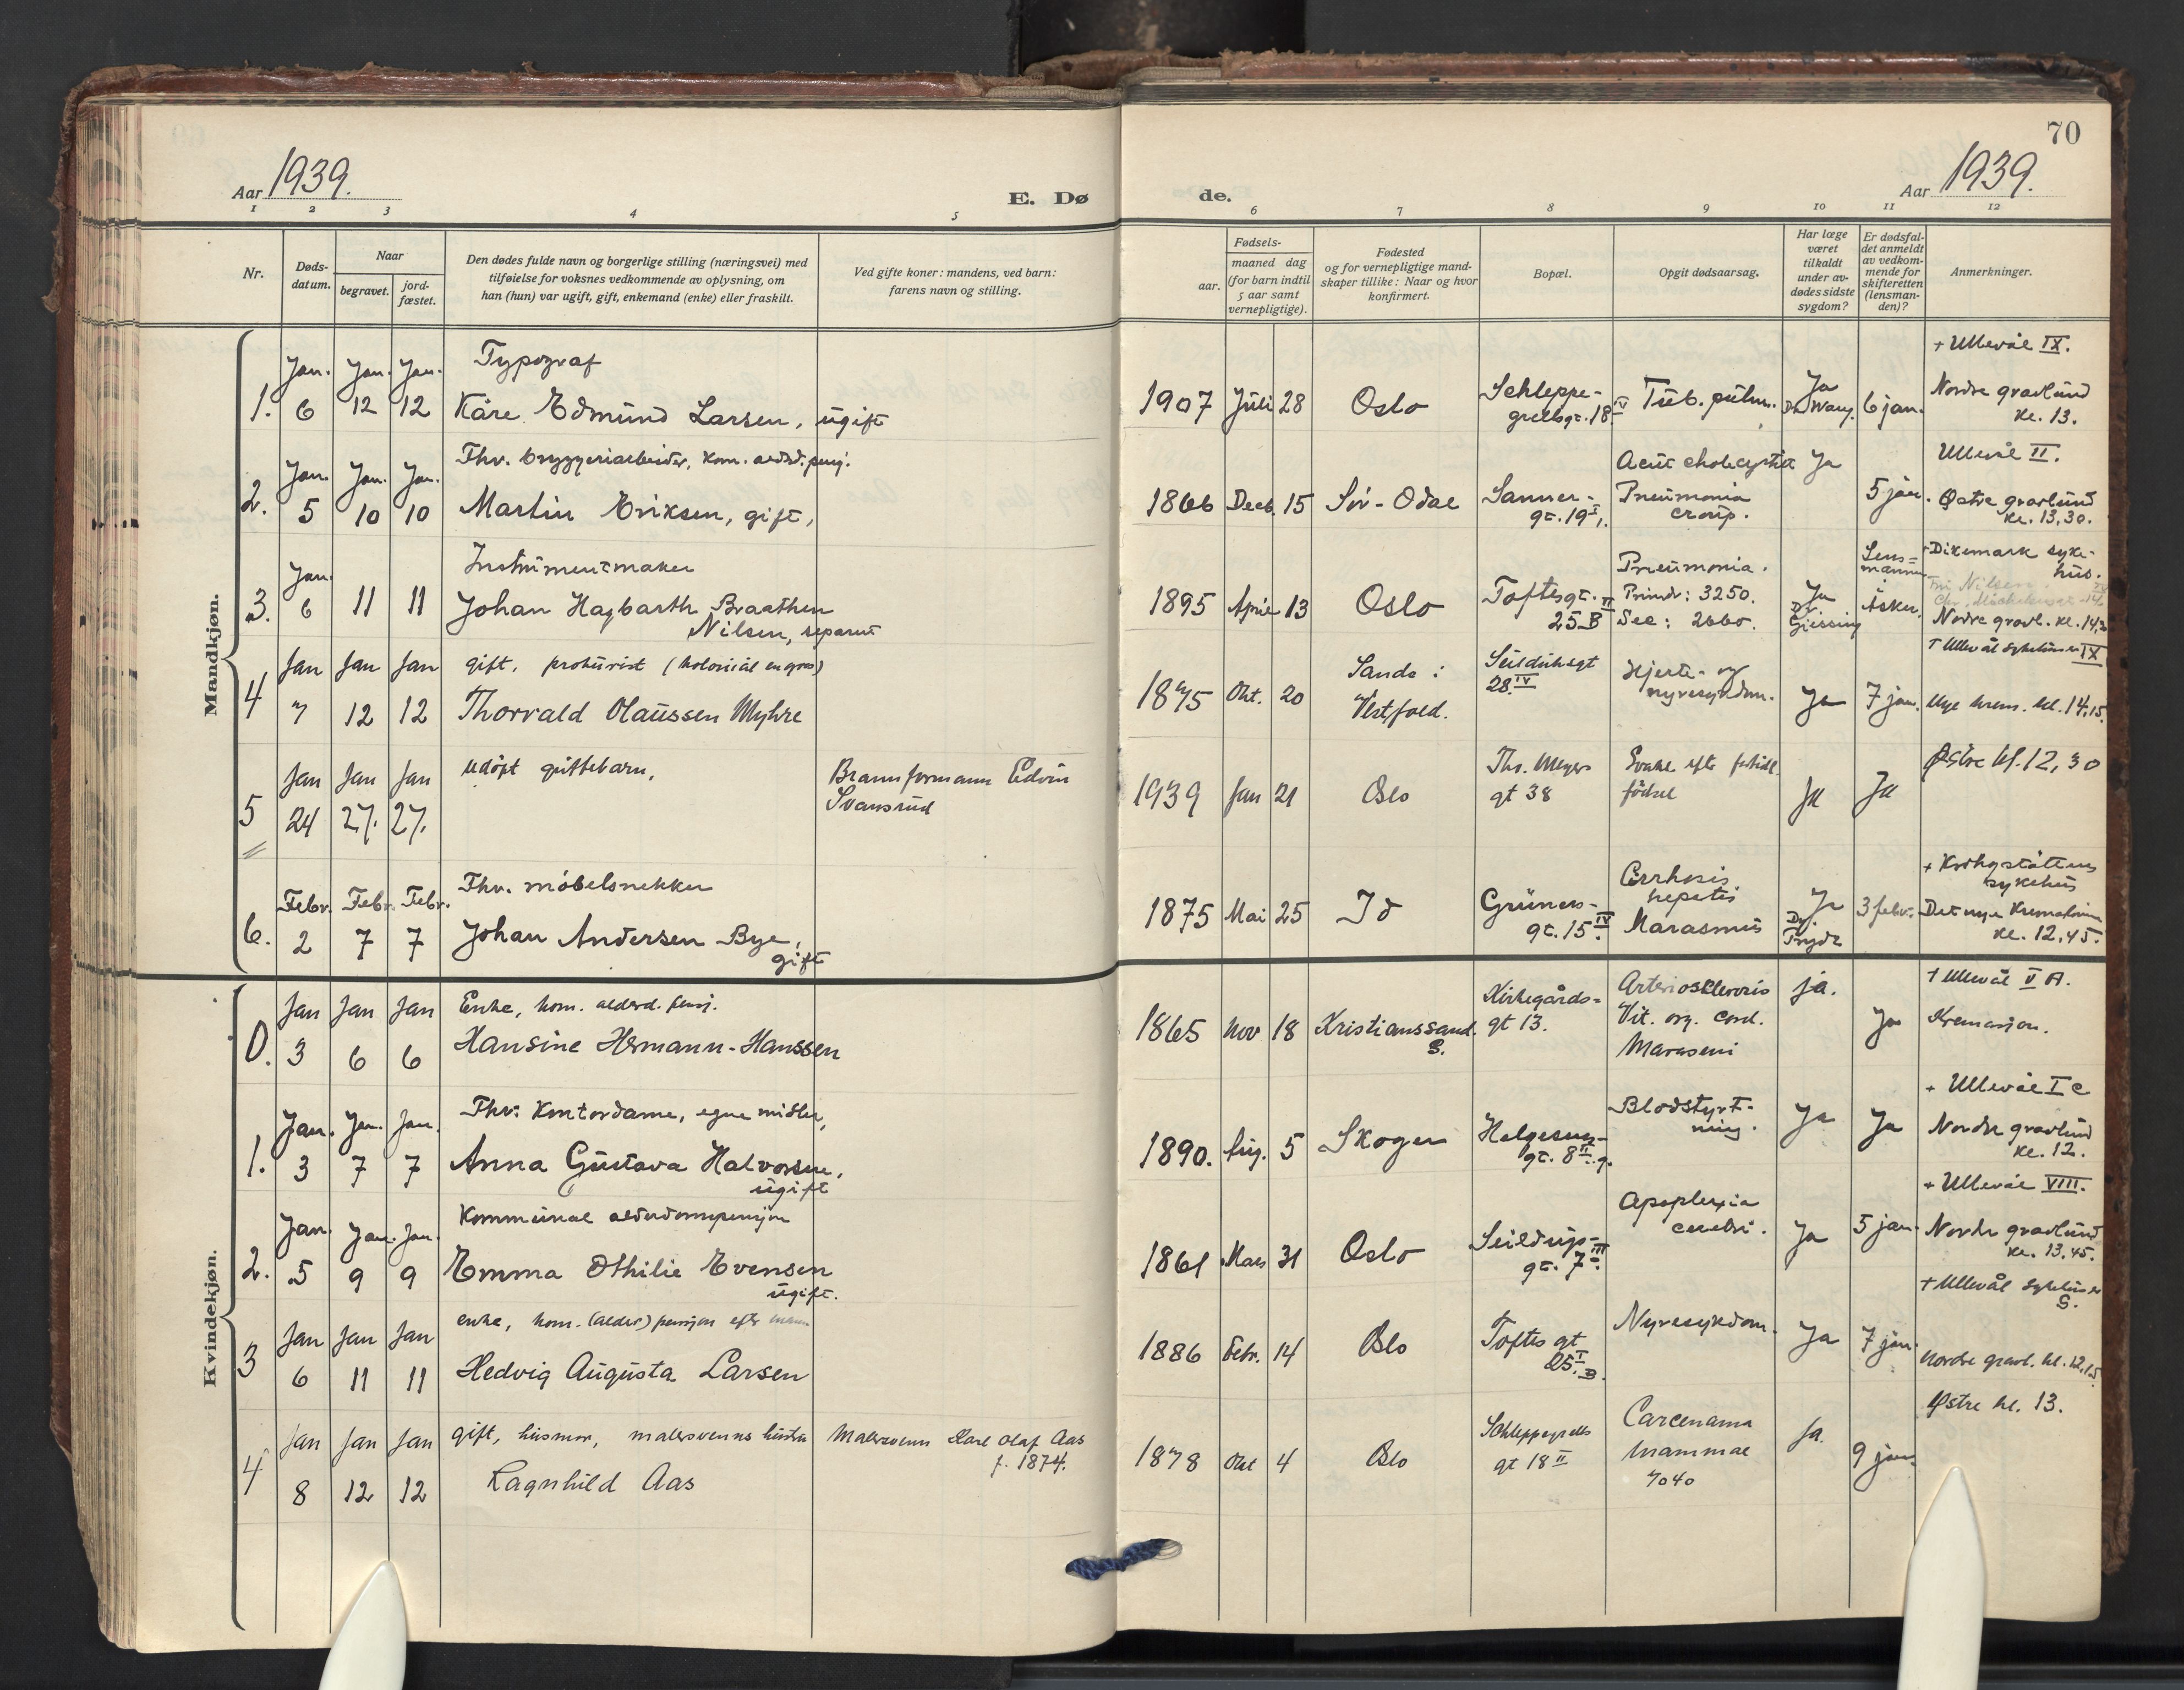 70
Aar 1939.
E. Dø
de.
Aar 1939.
1 2 3 4 5 6 7 8 9 10 11 12
Nr.
Døds-
datum.
Naar
begravet.
jord-
fæstet.
Den dødes fulde navn og borgerlige stilling (næringsvei) med
tilføielse for voksnes vedkommende av oplysning, om
han (hun) var ugift, gift, enkemand (enke) eller fraskilt.
Ved gifte koner: mandens, ved barn:
farens navn og stilling.
Fødsels-
aar.
maaned dag
(for barn indtil
5 aar samt
vernepligtige).
Fødested
og for vernepligtige mand-
skaper tillike: Naar og hvor
konfirmert.
Bopæl.
Opgit dødsaarsag.
Har læge
været
tilkaldt
under av-
dødes sidste
sygdom?
Er dødsfal-
det anmeldt
av vedkom-
mende for
skifteretten
(lensman-
den)?
Anmerkninger.
Mandkjøn.
1.
Jan. 6
Jan. 12
Jan. 12
Typograf
Kåre Edmund Larsen, ugift
1907 Juli 28
Oslo
Schleppe-
grellsgt. 18 IV
Tub. pulm.
Ja
6 jan.
+ Ullevål IX.
Nordre gravlund
kl. 13.
2.
Jan. 5
Jan. 10
Jan. 10
Fhv. bryggeriarbeider, kom. aldrd. pensj.
Martin Eriksen, gift,
1866 Decb. 15
Sør-Odal
Sanner-
gt. 19 I.
Acut cholecystit
Pneumonia
croup.
Ja
5 jan.
Ullevål II.
Østre gravlund
kl. 13,30.
3.
Jan. 6
11
11
Instrumentmaker
Johan Hagbarth Braathen
Nilsen, separert
1895 April 13
Oslo
Toftesgt.
25 B II
Pneumonia.
Primær: 3250.
Sec: 2660.
Ja
Dr.
Giessing
Lens-
mannen
Asker.
+ Dikemark syke-
hus.
Nordre gravl. kl. 14,30
4
Jan 7
Jan 12
Jan 12
gift, prokurist (kolonial engros)
Thorvald Olaussen Myhre
1875 Okt. 20
Sande i
Vestfold.
Seilduksgt
28 IV
Hjerte- og
nyresykdom.
Ja
7 jan.
+ Ullevål sykehus IX
Nye krem. kl. 14,15.
5
Jan 24
Jan 27.
Jan 27.
udøpt guttebarn,
Brannformann Edvin
Svansrud
1939 Jan 21
Oslo
Ths. Meyers
gt 38
Svake efter fortidl.
fødsel
Ja
Ja
Østre kl. 12,30
6.
Febr. 2
Febr. 7
Febr. 7
Fhv. møbelsnekker
Johan Andersen Bye,
gift
1875 Mai 25
Id
Grüners-
gt. 15 IV.
Cirrhosis
hepatis
Marasmus
Ja
Dr
3 febr.
+ Krohgstøttens
sykehus
Det nye Krematorium
kl. 12,45.
Kvindekjøn.
0.
Jan 3
Jan 6
Jan 6
Enke, kom. alderd. pensj.
Hansine Hermann-Hanssen
1865 Nov 18
Kristianssand
S.
Kirkegårds-
gt 13.
Arteriosclerosis
Vit. org. cord.
Marasmi
ja.
Ja
+ Ullevål V A.
Kremasjon.
1.
Jan. 3
Jan. 7
Jan. 7
Fhv. Kontordame, egne midler,
Anna Gustava Halvorsen,
ugift
1890. Aug. 5
Skoger
Helgesens-
gt. 8 II. g.
Blodstyrt-
ning.
Ja
Ja
+ Ullevål I c
Nordre gravlund
kl. 12.
2.
Jan. 5
Jan. 9
Jan. 9
Kommunal alderdomspensjon
Emma Othilie Evensen
ugift.
1861 Mars 31
Oslo
Seildugs-
gt. 7 III.
Apoplexia
cerebri.
Ja
5 jan.
+ Ullevål VIII.
Nordre gravlund
kl. 13,45.
3
Jan 6
Jan 11
Jan 11
enke, kom. (alders) pensjon efter mann
Hedvig Augusta Larsen
1886 Febr. 14
Oslo
Toftes gt
25 I B.
Nyresykdom.
Ja
7 jan.
+ Ullevål sykehus
S.
Nordre gravl. kl. 12,15
4
Jan 8
Jan 12
Jan 12
gift, husmor, malersvenns hustru
Ragnhild Aas
Malersvenn Karl Olaf Aas
f. 1874.
1878 Okt 4
Oslo
Schleppegrells
gt 18 II
Carcenama
mammae
7040
Ja.
9 jan.
Østre kl. 13.